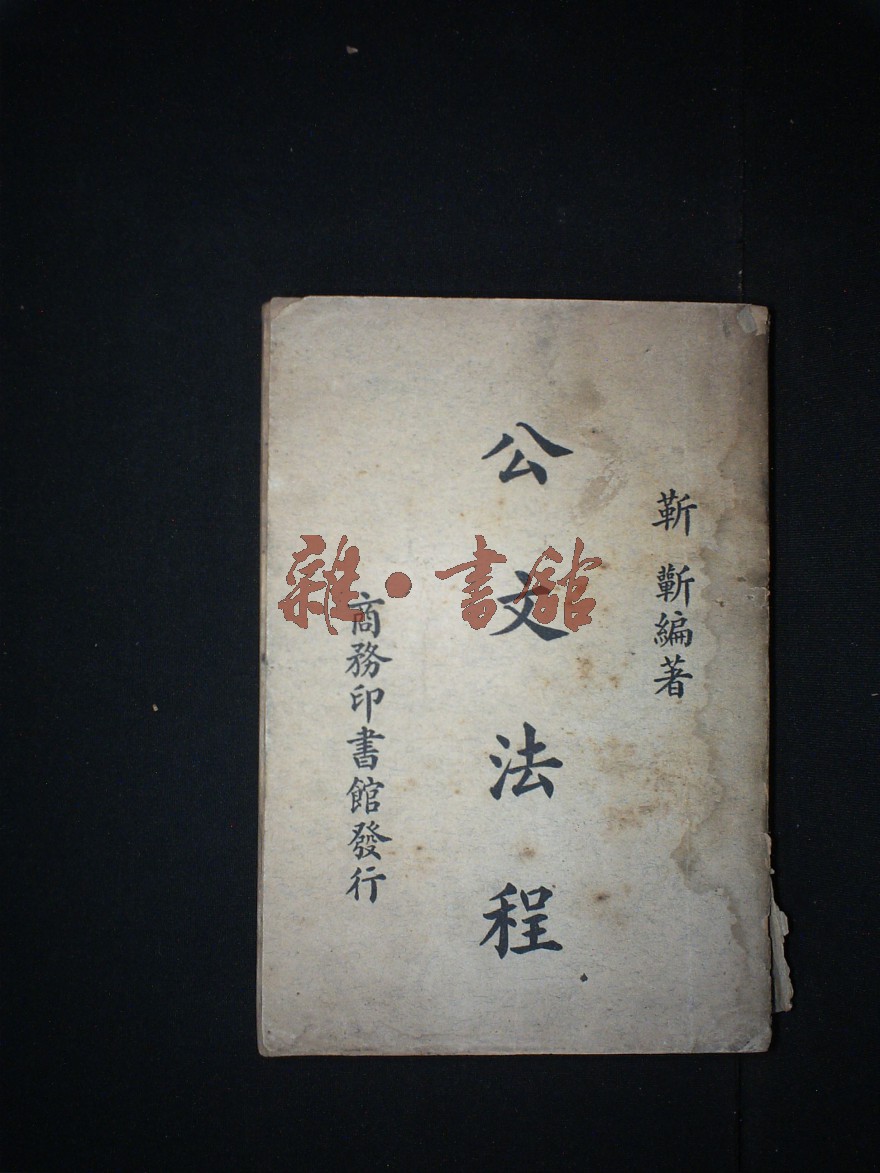 靳 斳編著
公文法程
商務印書館發行
雜·書館